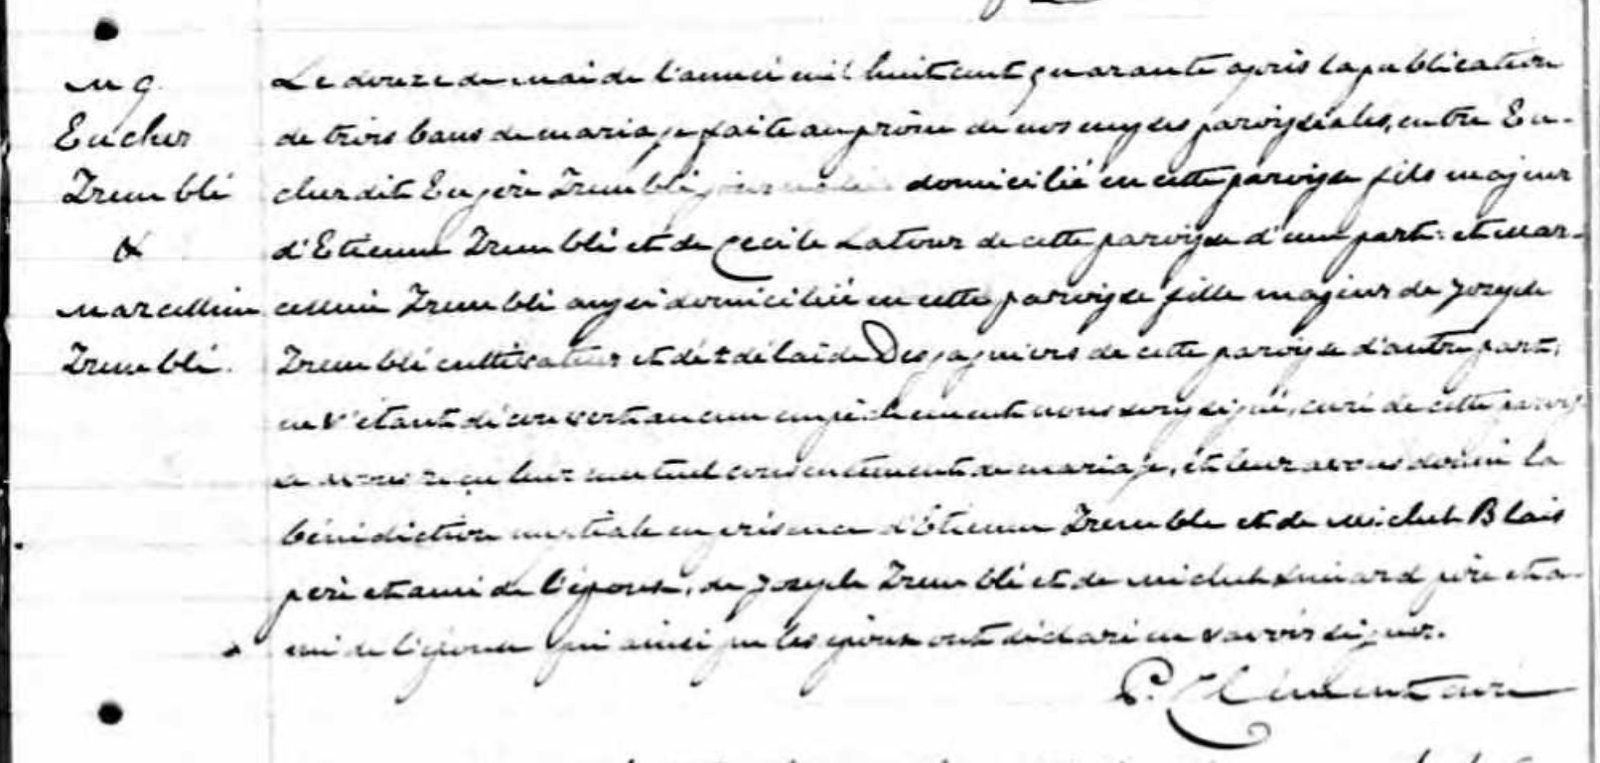 M 9.
Eucher
Tremblé
&
Marcelline
Tremblé.
Le douze de mai de l'année mil huit cent quarante après la publication
de trois bans de mariage faite au prône de nos messes paroissiales, entre Eu-
cher dit Eugère Tremblé journalier domicilié en cette paroisse fils majeur
d'Etienne Tremblé et de Cecile Latour de cette paroisse d'une part: et Mar-
celline Tremblé aussi domiciliée en cette paroisse fille majeur de Joseph
Tremblé cultivateur et de Desgagniers de cette paroisse d'autre part;
ne s'étant découvert aucun empêchement nous soussigné, curé de cette parois-
se avons reçu leur mutuel consentement de mariage, et leur avons donné la
bénédiction nuptiale en présence d'Étienne Tremble et de Michel Blais
père et ami de l'époux, de Joseph Tremblé et de Michel Simard père et a-
mi de l'épouse qui ainsi que les époux ont déclaré ne savoir signer.
P. Clément curé